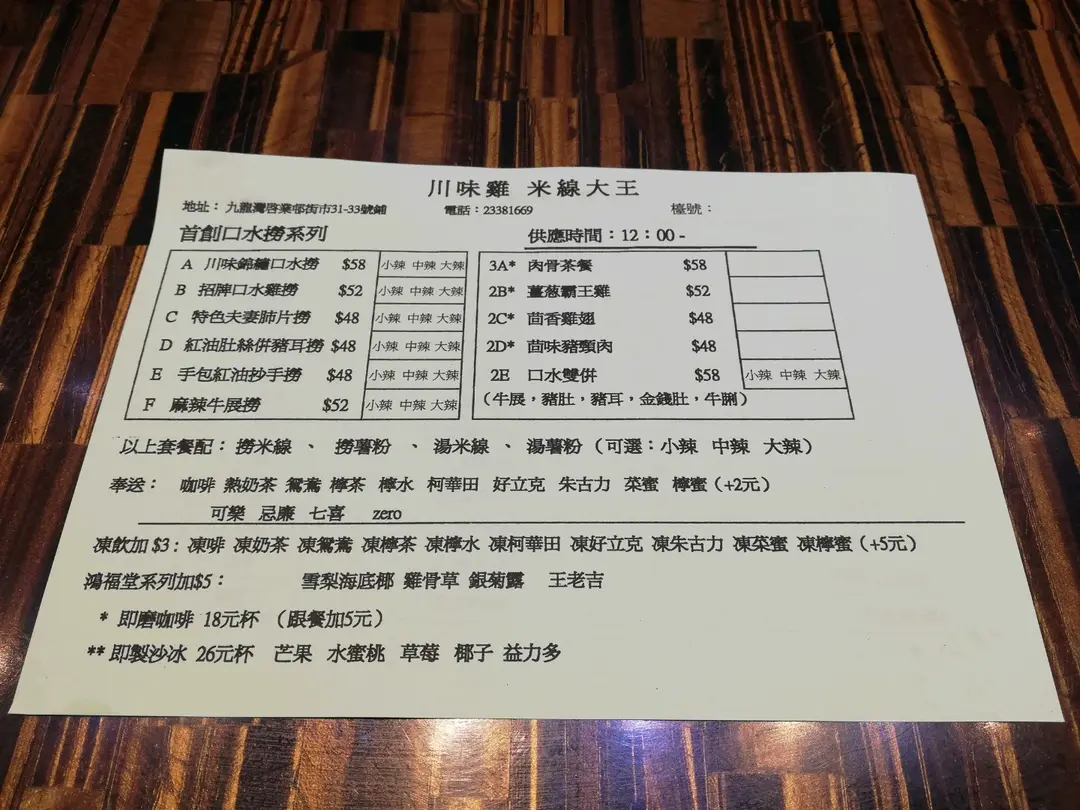 川味雞 米線大王
地址： 九龍灣啓業邨街市31-33號舖 電話：23381669 檯號：
首創口水撈系列 供應時間：12：00 -
A 川味錦繡口水撈 $58 小辣 中辣 大辣
B 招牌口水雞撈 $52 小辣 中辣 大辣
C 特色夫妻肺片撈 $48 小辣 中辣 大辣
D 紅油肚絲併豬耳撈 $48 小辣 中辣 大辣
E 手包紅油抄手撈 $48 小辣 中辣 大辣
F 麻辣牛展撈 $52 小辣 中辣 大辣
3A* 肉骨茶餐 $58
2B* 薑葱霸王雞 $52
2C* 茴香雞翅 $48
2D* 茴味豬頸肉 $48
2E 口水雙併 $58 小辣 中辣 大辣
（牛展，豬肚，豬耳，金錢肚，牛脷）
以上套餐配： 撈米線 、 撈薯粉 、 湯米線 、 湯薯粉（可選：小辣 中辣 大辣）
奉送： 咖啡 熱奶茶 鴛鴦 檸茶 檸水 柯華田 好立克 朱古力 菜蜜 檸蜜（+2元）
可樂 忌廉 七喜 zero
凍飲加 $3： 凍啡 凍奶茶 凍鴛鴦 凍檸茶 凍檸水 凍柯華田 凍好立克 凍朱古力 凍菜蜜 凍檸蜜（+5元）
鴻福堂系列加$5： 雪梨海底椰 雞骨草 銀菊露 王老吉
* 即磨咖啡 18元杯 （跟餐加5元）
** 即製沙冰 26元杯 芒果 水蜜桃 草莓 椰子 益力多